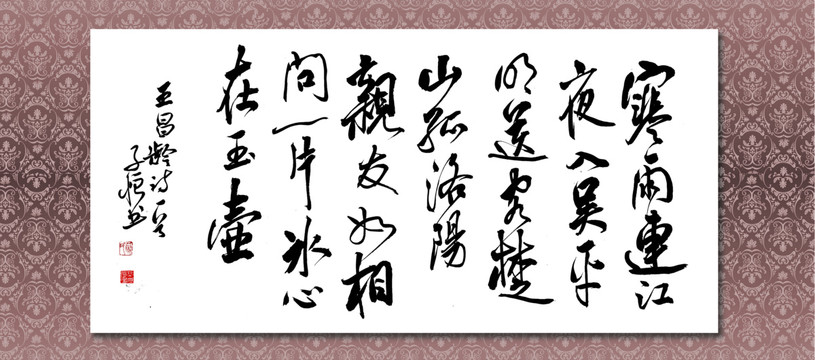 寒雨連江
夜入吳平
明送客楚
山孤洛陽
親友如相
問一片冰心
在玉壺
王昌齡诗一首
子恒书